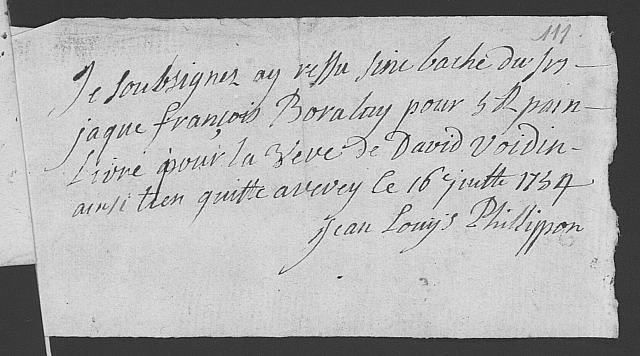 111
Je soubsignez ay ressu sinc bache du sr
jaque françois Boraley pour 5 lt pain
Livre pour la veve de David Voidin
ainsi tien quitte a vevey le 16 juitte 1734
Jean Louys Philippon